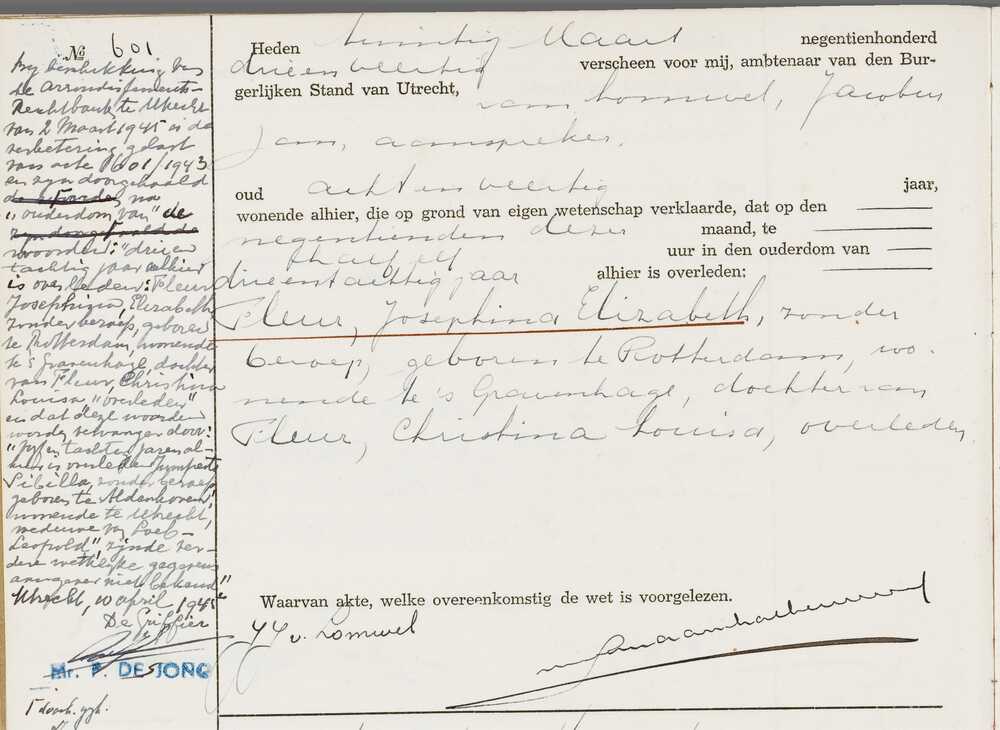 No 601
Bij beschikking van
de Arrondissements-
Rechtbank te Utrecht
van 2 Maart 1945 is de
verbetering gelast
van acte 601/1943
en zijn doorgehaald
de woorden na
"ouderdom van" de
woorden: "drieen
tachtig jaar alhier
is overleden: Fleur
Josephina, Elizabeth
zonder beroep, geboren
te Rotterdam, wonende
te 's Gravenhage, dochter
van Fleur, Christina
Louisa, overleden"
en dat deze woorden
worden vervangen door:
"vijf en tachtig jaren al-
hier is overleden
Sibilla, zonder beroep
geboren te Aldenhoven,
wonende te Utrecht,
weduwe van Loeb-
Leopold", zijnde ver-
dere wettelijke gegevens
aangever niet bekend"
Utrecht, 10 april 1945
De Griffier
Mr. P. DE JONG
1 doorh. ggk.
Heden twintig Maart negentienhonderd
drieenveertig verscheen voor mij, ambtenaar van den Bur-
gerlijken Stand van Utrecht, van Lomwel, Jacobus
Jan, aanspreker,
oud achtenveertig jaar,
wonende alhier, die op grond van eigen wetenschap verklaarde, dat op den
negentienden dezer maand, te
half elf uur in den ouderdom van
drieentachtig jaar alhier is overleden:
Fleur, Josephina Elizabeth, zonder
beroep, geboren te Rotterdam, wo-
nende te 's Gravenhage, dochter van
Fleur, Christina Louisa, overleden.
Waarvan akte, welke overeenkomstig de wet is voorgelezen.
JJ v. Lomwel